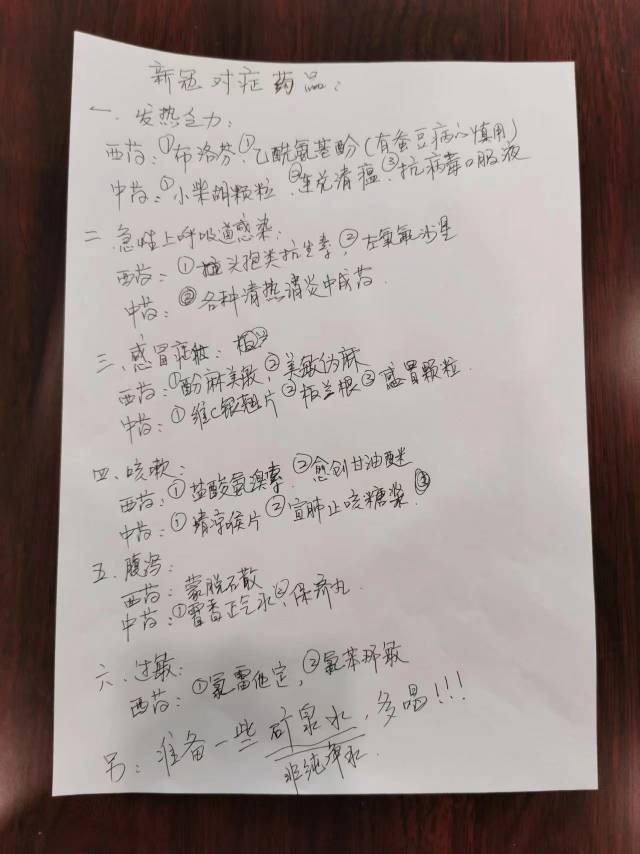 新冠对症药品：
一、发热乏力：
西药：①布洛芬②乙酰氨基酚（有蚕豆病心慎用）
中药：①小柴胡颗粒 ②连花清瘟 ③抗病毒口服液
二、急性上呼吸道感染：
西药：①头孢类抗生素，②左氧氟沙星
中药：②各种清热消炎中成药.
三、感冒症状：
西药：①酚麻美敏，②美敏伪麻
中药：①维C银翘片②板兰根③感冒颗粒.
四、咳嗽：
西药：①盐酸氨溴索 ②愈创甘油醚
中药：①清凉喉片 ②宣肺止咳糖浆. ③
五、腹泻：
西药：蒙脱石散
中药：①霍香正气水②，保济丸.
六、过敏：
西药：①氯雷他定，②氯苯那敏
另：准备一些矿泉水，多喝!!!
非纯净水.